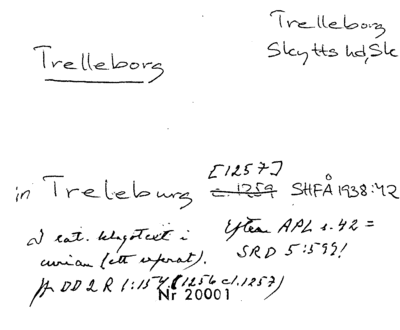 Trelleborg
Trelleborg
Skytts hd, Sk
[1257]
in Treleburg c. 1259 SHFÅ 1938:42
I eat. klagotext i
curian (ett referat).
Efter APL s. 42 =
SRD 5:599!
Jfr DD 2 R 1:154 (1256 el. 1257)
Nr 20001